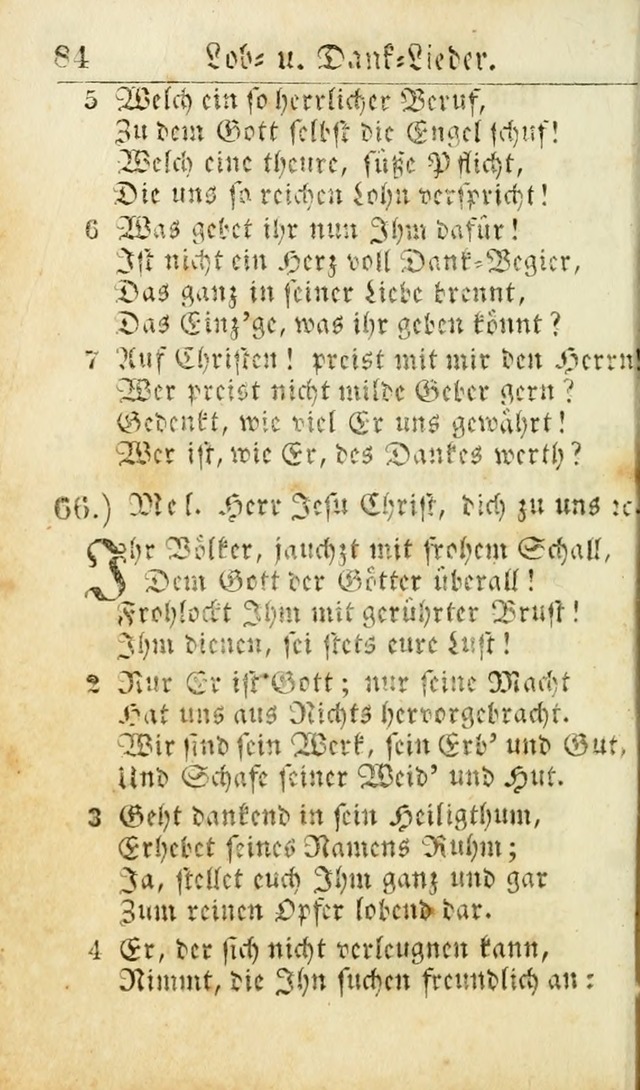 84 Lob- u. Dank-Lieder.
5 Welch ein so herrlicher Beruf,
Zu dem Gott selbst die Engel schuf!
Welch eine theure, süße Pflicht,
Die uns so reichen Lohn verspricht!
6 Was gebet ihr nun Ihm dafür!
Ist nicht ein Herz voll Dank-Begier,
Das ganz in seiner Liebe brennt,
Das Einz'ge, was ihr geben könnt?
7 Auf Christen! preist mit mir den Herrn!
Wer preist nicht milde Geber gern?
Gedenkt, wie viel Er uns gewährt!
Wer ist, wie Er, des Dankes werth?
66.) Mel. Herr Jesu Christ, dich zu uns ꝛc.
Ihr Völker, jauchzt mit frohem Schall,
Dem Gott der Götter überall!
Frohlockt Ihm mit gerührter Brust!
Ihm dienen, sei stets eure Lust!
2 Nur Er ist Gott; nur seine Macht
Hat uns aus Nichts hervorgebracht.
Wir sind sein Werk, sein Erb' und Gut,
Und Schafe seiner Weid' und Hut.
3 Geht dankend in sein Heiligthum,
Erhebet seines Namens Ruhm;
Ja, stellet euch Ihm ganz und gar
Zum reinen Opfer lobend dar.
4 Er, der sich nicht verleugnen kann,
Nimmt, die Ihn suchen freundlich an: